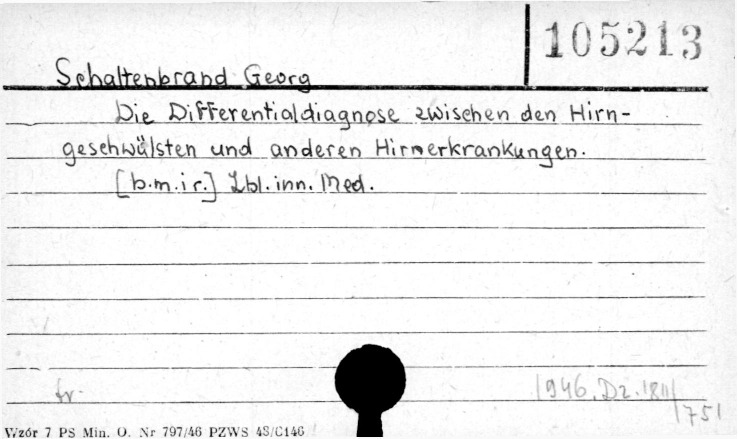 105213
Schaltenbrand Georg
Die Differentialdiagnose zwischen den Hirn-
geschwülsten und anderen Hirnerkrankungen.
[b.m.i r.] Zbl. inn. Med.
fr.
1946. Dz. 1811/
751
Wzór 7 PS Min. O. Nr 797/46 PZWS 48/C146